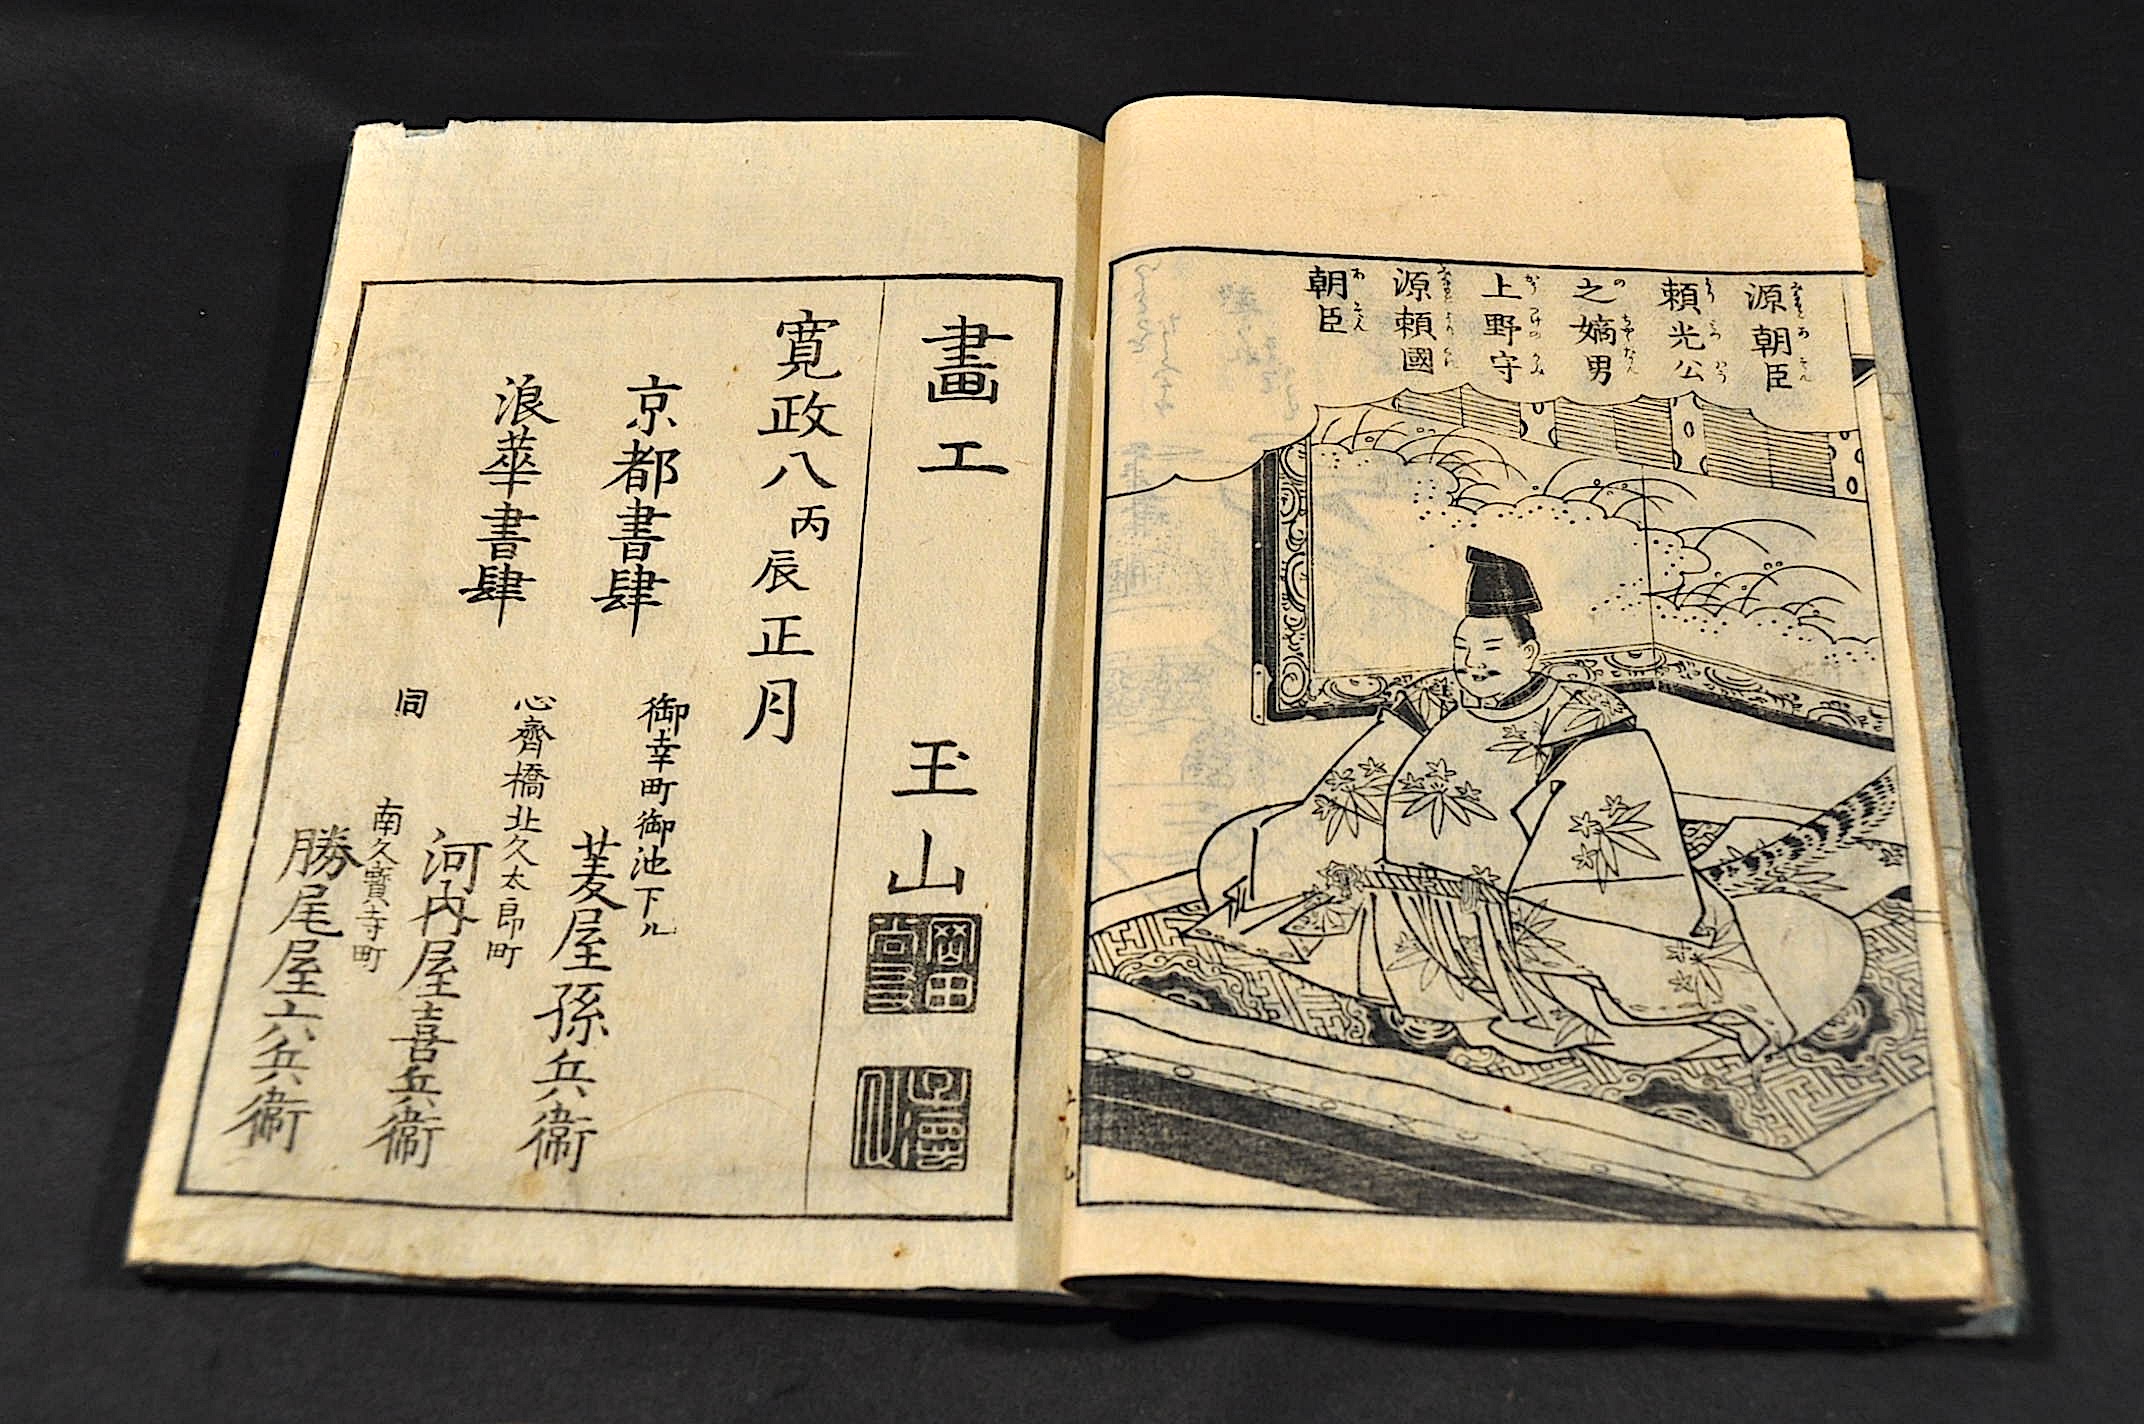 源朝臣
頼光公
之嫡男
上野守
源頼國
朝臣
畫工 玉山
岡田尚友
子德氏
寛政八丙辰正月
京都書肆
御幸町御池下ル
菱屋孫兵衛
浪華書肆
心齊橋北久太郎町
河内屋喜兵衛
同
南久寳寺町
勝尾屋六兵衛